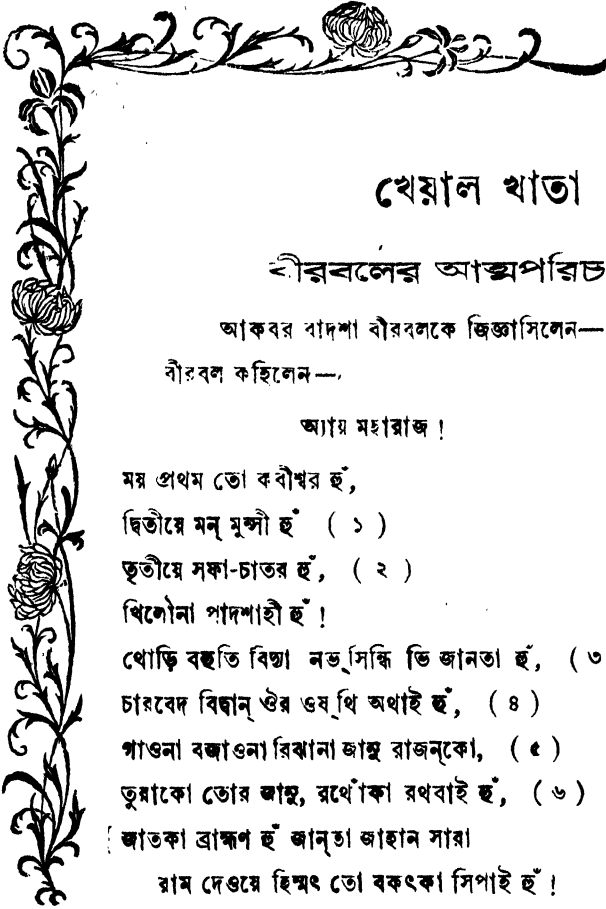 খেয়াল খাতা
বীরবলের আত্মপরিচ
আকবর বাদশা বীরবলকে জিজ্ঞাসিলেন—
বীরবল কহিলেন—
অ্যায় মহারাজ !
ময় প্রথম তো কবীশ্বর হুঁ,
দ্বিতীয়ে মন্ মুন্সী হুঁ ( ১ )
তৃতীয়ে সফা-চাতর হুঁ, ( ২ )
খিলৌনা পাদশাহী হুঁ !
থোড়ি বহুতি বিদ্যা নভ্‌সিন্ধি ভি জানতা হুঁ, ( ৩
চারবেদ বিদ্বান্ ঔর ওষ্‌থি অথাই হুঁ, ( ৪ )
গাওনা বজাওনা রিঝানা জান্নু রাজন্‌কো, ( ৫ )
তুরাকো তোর জান্নু, রথোঁকা রথবাই হুঁ, ( ৬ )
জাতকা ব্রাহ্মণ হুঁ জান্‌তা জাহান সারা
রাম দেওয়ে হিম্মৎ তো বকৎকা সিপাই হুঁ !